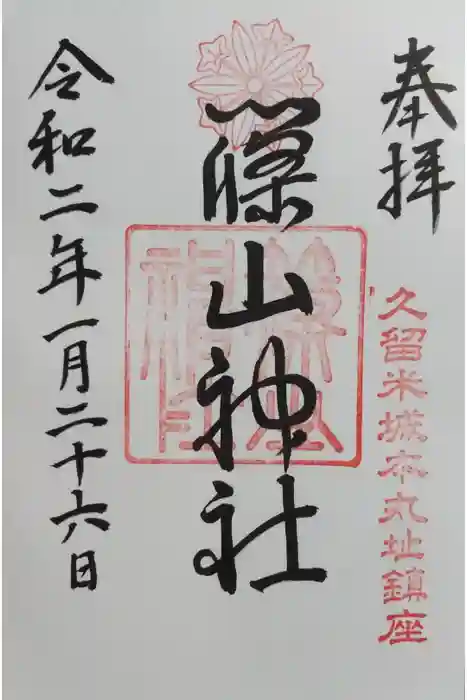 奉拝
久留米城本丸址鎮座
篠山神社
篠山神社
令和二年一月二十六日